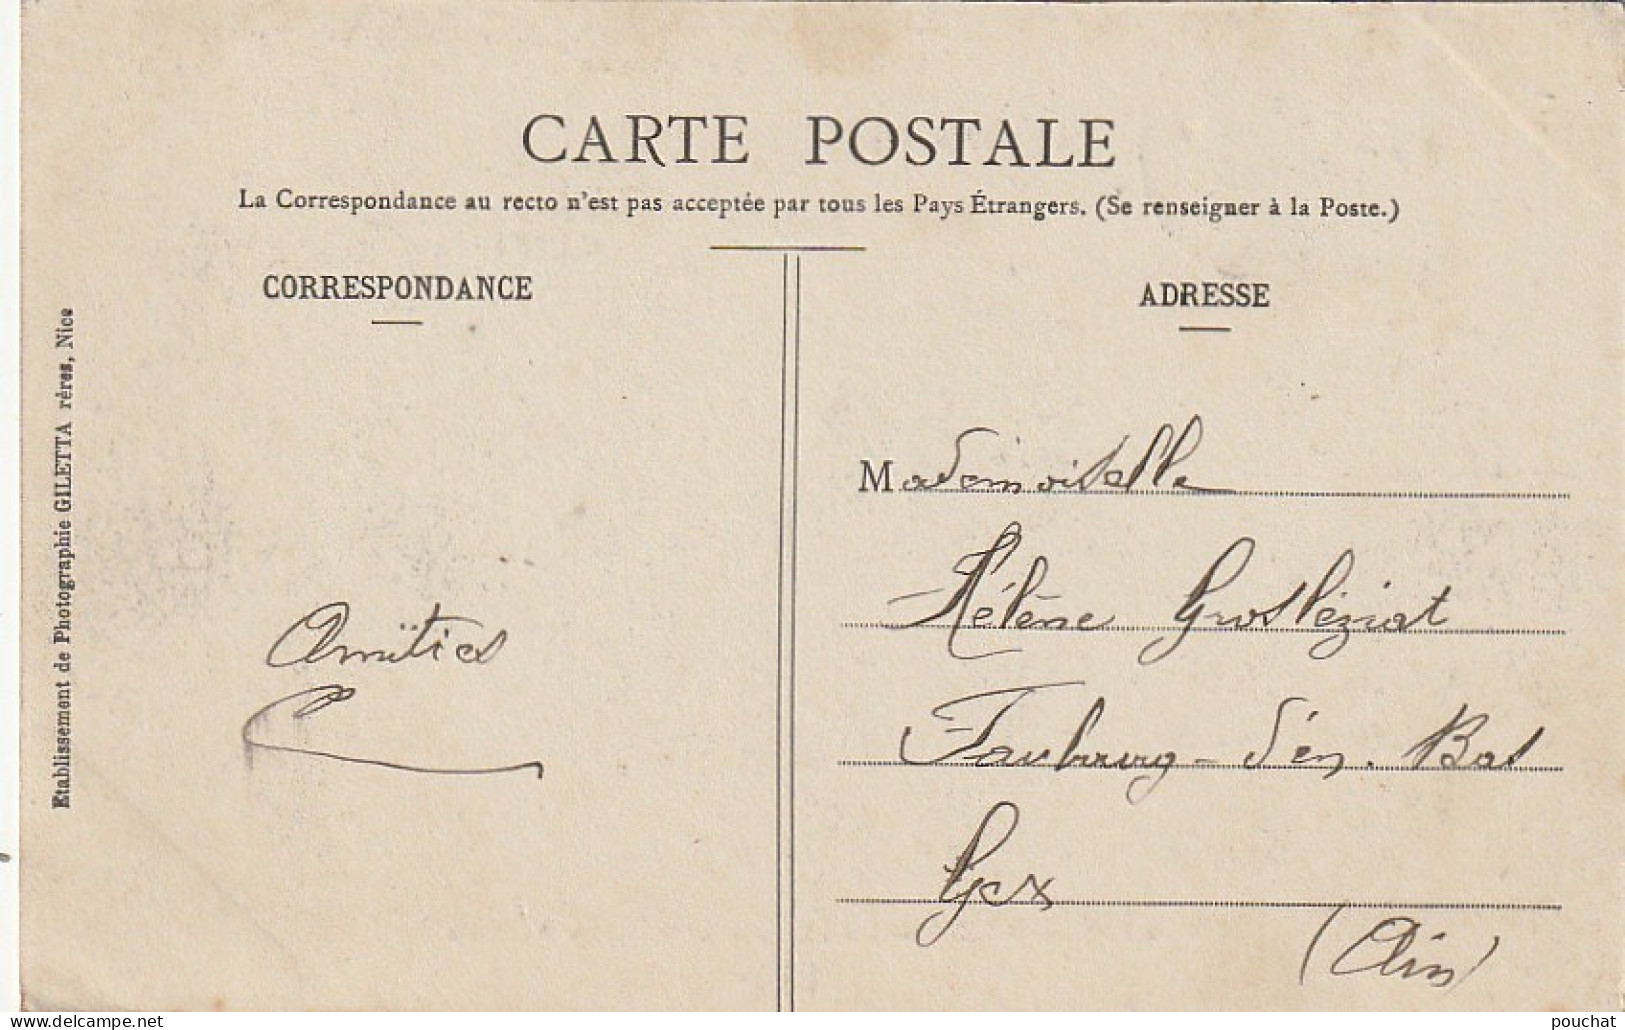 CARTE POSTALE
La Correspondance au recto n'est pas acceptée par tous les Pays Étrangers. (Se renseigner à la Poste.)
CORRESPONDANCE
Amitiés
Etablissement de Photographie GILETTA rères, Nice
ADRESSE
Mademoiselle
Hélène Grosléziat
Faubourg - d'en. Bas
Gex
(Ain)
https://www.delcampe.net
pouchat